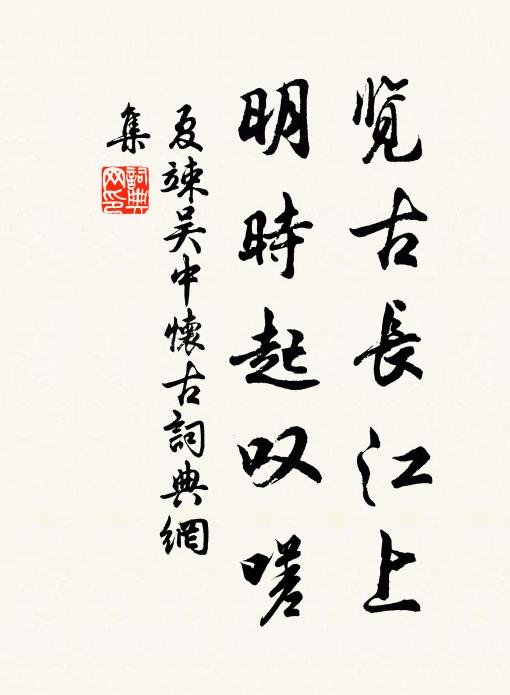 览古長江上
明時起叹嗟
夏竦吴中懷古詞典網
集
詞典网印